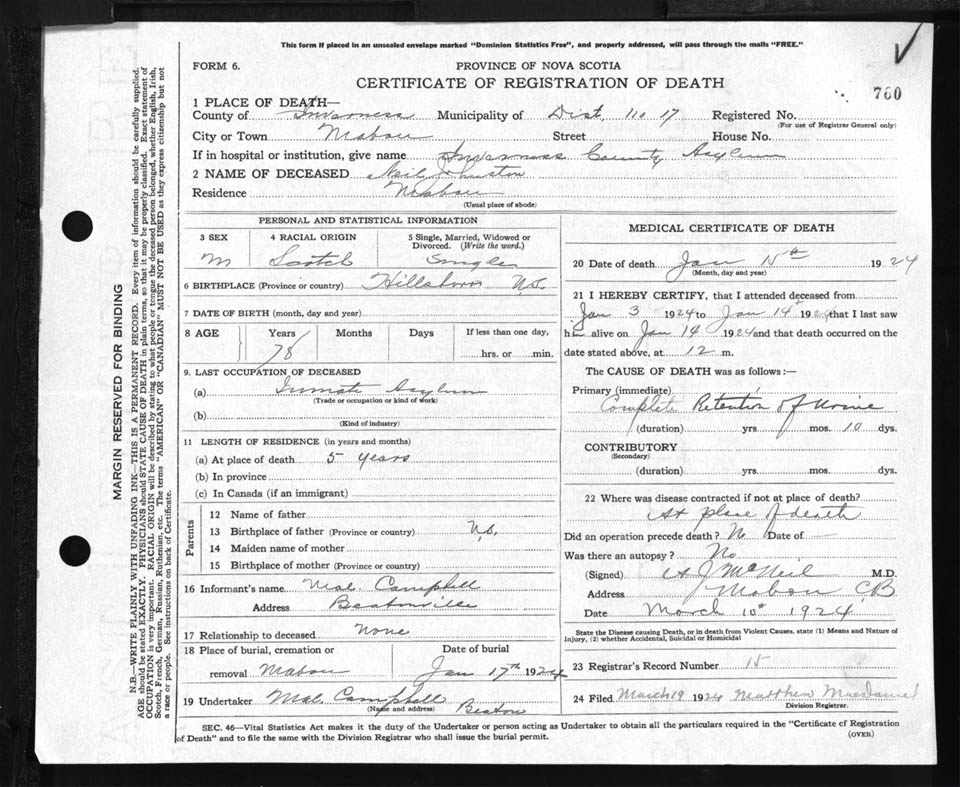 This form if placed in an unsealed envelope marked "Dominion Statistics Free", and properly addressed, will pass through the mails "FREE."
FORM 6.
PROVINCE OF NOVA SCOTIA
CERTIFICATE OF REGISTRATION OF DEATH
760
1 PLACE OF DEATH—
County of Inverness Municipality of Dist. No 17 Registered No.
(For use of Registrar General only)
City or Town Mabou Street House No.
If in hospital or institution, give name Inverness County Asylum
2 NAME OF DECEASED Neil Johnston
Residence Mabou
(Usual place of abode)
PERSONAL AND STATISTICAL INFORMATION
3 SEX 4 RACIAL ORIGIN 5 Single, Married, Widowed or Divorced. (Write the word.)
M Scotch Single
6 BIRTHPLACE (Province or country) Hillsboro N.S.
7 DATE OF BIRTH (month, day and year)
8 AGE Years Months Days If less than one day,
78 hrs. or min.
9. LAST OCCUPATION OF DECEASED
(a) Inmate Asylum
(Trade or occupation or kind of work)
(b)
(Kind of industry)
11 LENGTH OF RESIDENCE (in years and months)
(a) At place of death 5 years
(b) In province
(c) In Canada (if an immigrant)
Parents
12 Name of father
13 Birthplace of father (Province or country) N.S.
14 Maiden name of mother
15 Birthplace of mother (Province or country)
16 Informant's name Mal. Campbell
Address Beatonville
17 Relationship to deceased None
18 Place of burial, cremation or Date of burial
removal Mabou Jan 17th 1924
19 Undertaker Mal. Campbell
(Name and address) Beaton
MEDICAL CERTIFICATE OF DEATH
20 Date of death Jan 15th 1924
(Month, day and year)
21 I HEREBY CERTIFY, that I attended deceased from
Jan 3 1924 to Jan 14th 1924 that I last saw
h alive on Jan 14 1924 and that death occurred on the
date stated above, at 12 m.
The CAUSE OF DEATH was as follows :—
Primary (immediate)
Complete Retention of Urine
(duration) yrs. mos. 10 dys.
CONTRIBUTORY
(Secondary)
(duration) yrs. mos. dys.
22 Where was disease contracted if not at place of death?
At place of death
Did an operation precede death? No Date of —
Was there an autopsy? No
(Signed) A J McNeil M.D.
Address Mabou CB
Date March 10th 1924
State the Disease causing Death, or in death from Violent Causes, state (1) Means and Nature of
Injury, (2) whether Accidental, Suicidal or Homicidal
23 Registrar's Record Number 15
24 Filed March 19 1924 Matthew Macdaniel
Division Registrar.
SEC. 46—Vital Statistics Act makes it the duty of the Undertaker or person acting as Undertaker to obtain all the particulars required in the "Certificate of Registration
of Death" and to file the same with the Division Registrar who shall issue the burial permit.
(OVER)
MARGIN RESERVED FOR BINDING
N.B.—WRITE PLAINLY WITH UNFADING INK—THIS IS A PERMANENT RECORD. Every item of information should be carefully supplied.
AGE should be stated EXACTLY. PHYSICIANS should STATE CAUSE OF DEATH in plain terms, so that it may be properly classified. Exact statement of
OCCUPATION is very important. RACIAL ORIGIN will be described by stating to what people or tongue the deceased person belonged, whether English, Irish,
Scotch, French, German, Russian, Ruthenian, etc. The terms "AMERICAN" OR "CANADIAN" MUST NOT BE USED as they express citizenship but not
a race or people. See instructions on back of Certificate.